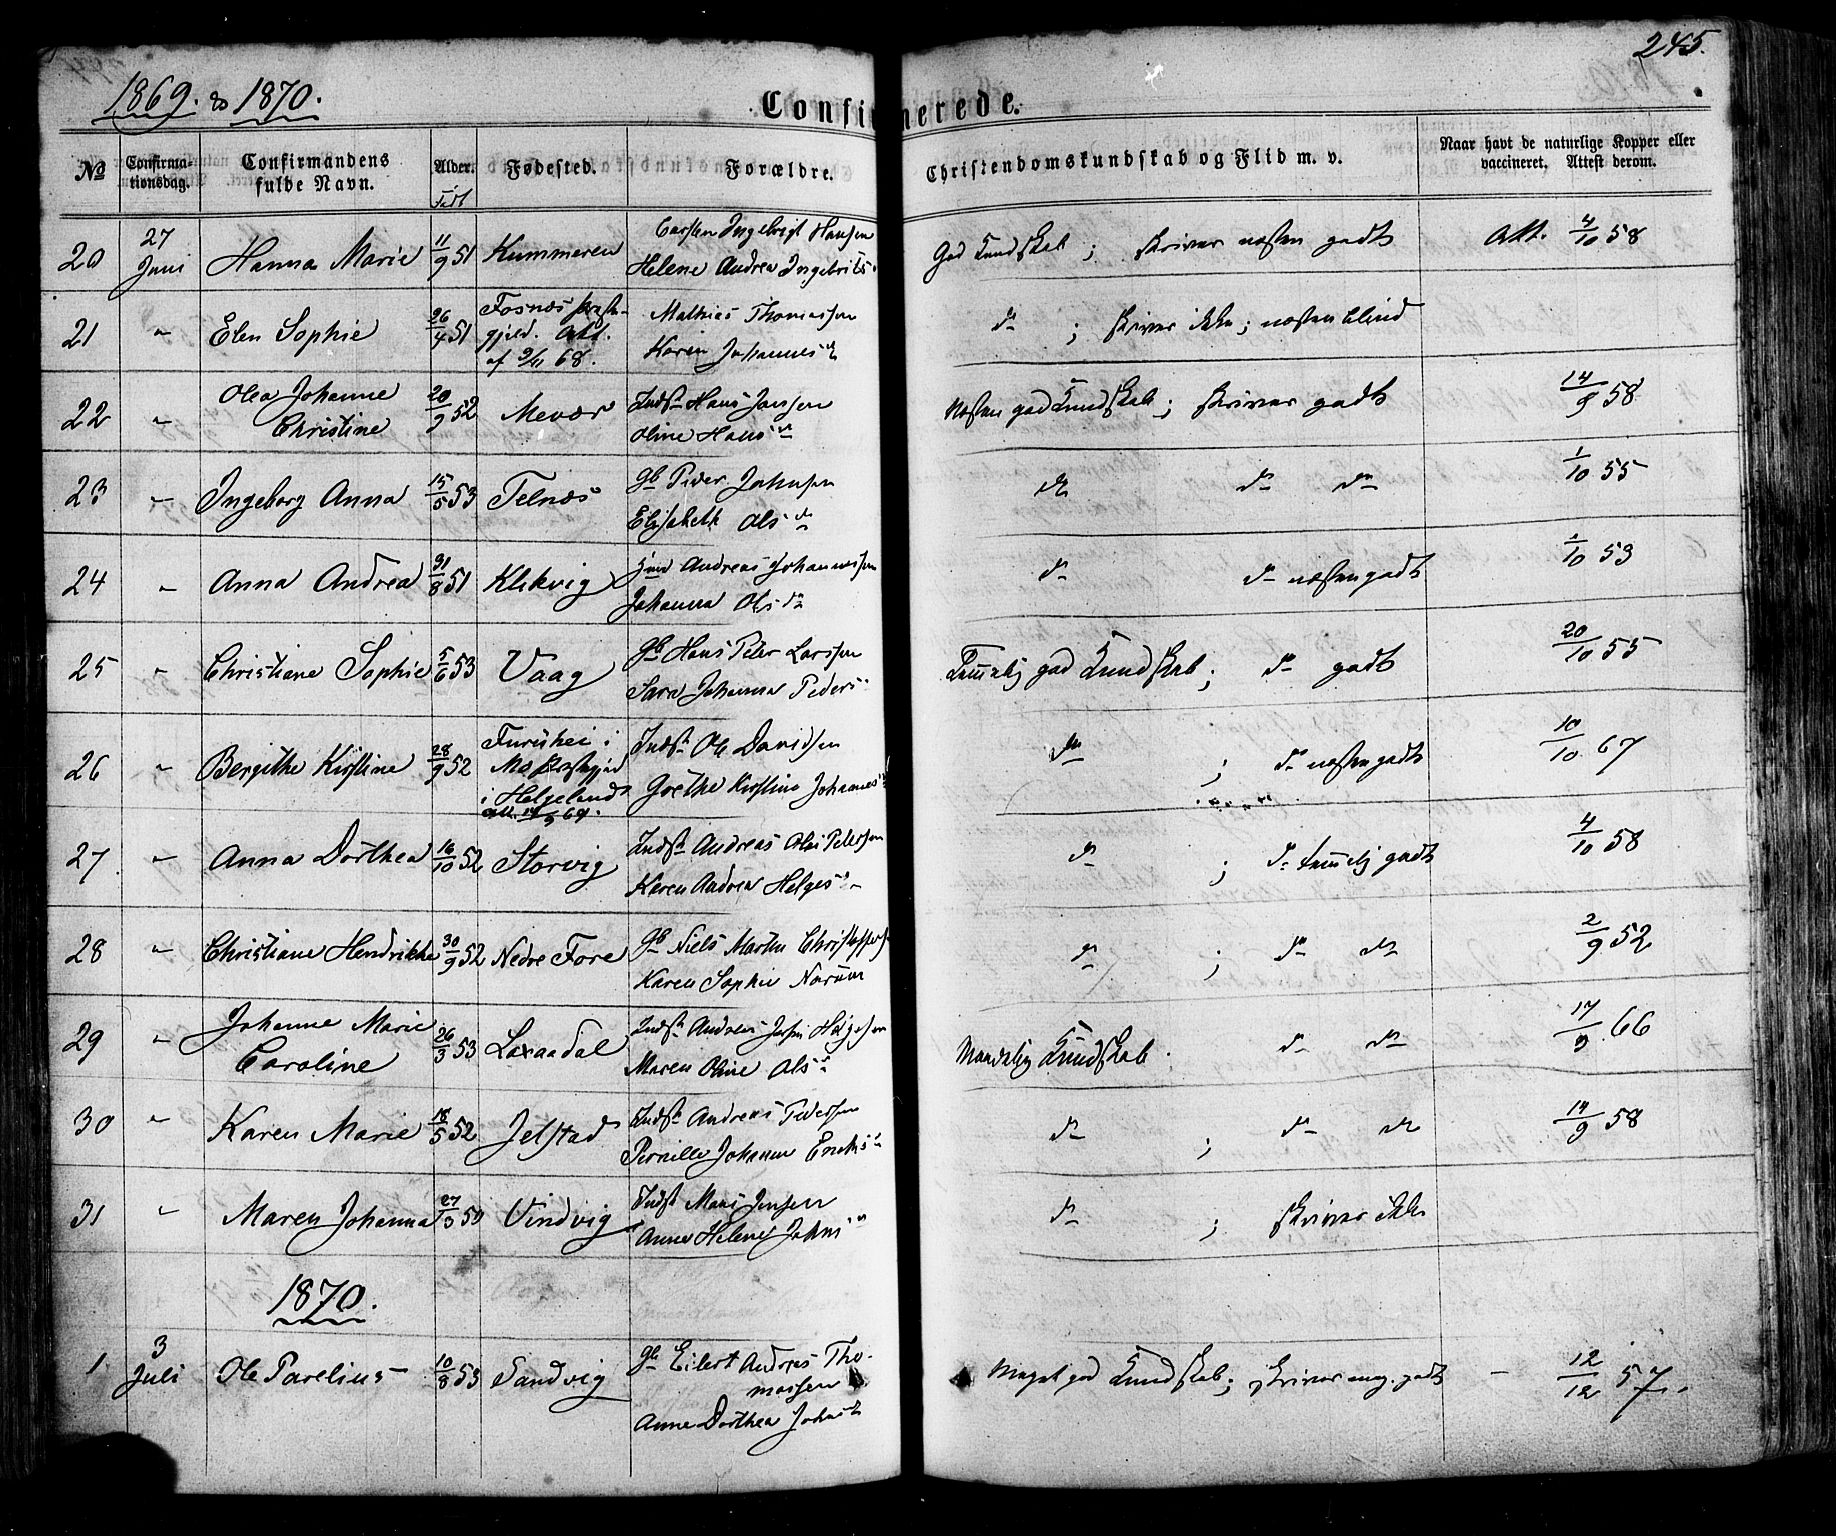 245.
1869. & 1870.
Confirmerede.
No
Confirmationsdag.
Confirmandens fulde Navn.
Alder.
Født
Fødested.
Forældre.
Christendomskundskab og Flid m. v.
Naar havt de naturlige Kopper eller vaccineret. Attest derom.
20 27 Juni Hanna Marie 11/9 51 Kummeren Carsten Ingebrigt Hansen
Helene Andrea Ingebrits
God Kundskab; skriver næsten godt Att. 4/10 58
21 " Elen Sophie 26/4 51 Fosnæs Præste-
gjeld. Att.
af 9/11 68.
Mathias Thomassen
Karen Johannesd
do ; skriver ikke; næsten blind
22 " Olea Johanne
Christine
20/9 52 Mevær Indst Hans Jensen
Oline Hansd
Næsten god Kundskab; skriver godt 14/9 58
23 " Ingeborg Anna 15/5 53 Telnæs Gb Peder Johnsen
Elisabeth Olsd
do do do 1/10 55
24 " Anna Andrea 31/8 51 Klekvig Andreas Johannessen
Johanna Olsd
do do næsten godt 1/10 53
25 " Christiane Sophie 5/6 53 Vaag Gb Hans Peter Larssen
Sara Johanna Peders
Temmelig god Kundskab; do godt 20/10 55
26 " Bergithe Kirstine 28/9 52 Furuhei i
Mo Præstegjeld
i Helgeland
Indst Ole Davidsen
Grethe Kirstine Johannes
do ; do næsten godt 10/10 67
27 " Anna Dorthea 16/10 52 Storvig Indst Andreas Olai Petersen
Karen Andrea Helges
do ; do temmelig godt 4/10 58
28 " Christiane Hendrikke 30/9 52 Nedre Fore Gb Niels Martin Christoffers
Karen Sophie Norum
do ; do do 2/9 52
29 " Johanne Marie
Caroline
26/3 53 Laxaadal Indst Andreas Helgesen
Maren Oline Olsd
Maadelig Kundskab. do do 17/9 66
30 " Karen Marie 18/5 52 Jelstad Indst Andreas Pedersen
Pernille Johanna Eriks
do ; do do 14/9 58
31 " Maren Johanna 27/3 50 Vindvig Indst Mons Jensen
Anne Helene Johns
do ; skriver ikke
1870.
1 3 Juli Ole Parelius 10/8 53 Sandvig Gb Eilert Andreas Tho-
massen
Anne Dorthea Johnsd
Meget god Kundskab; skriver meg. godt – 12/12 57.